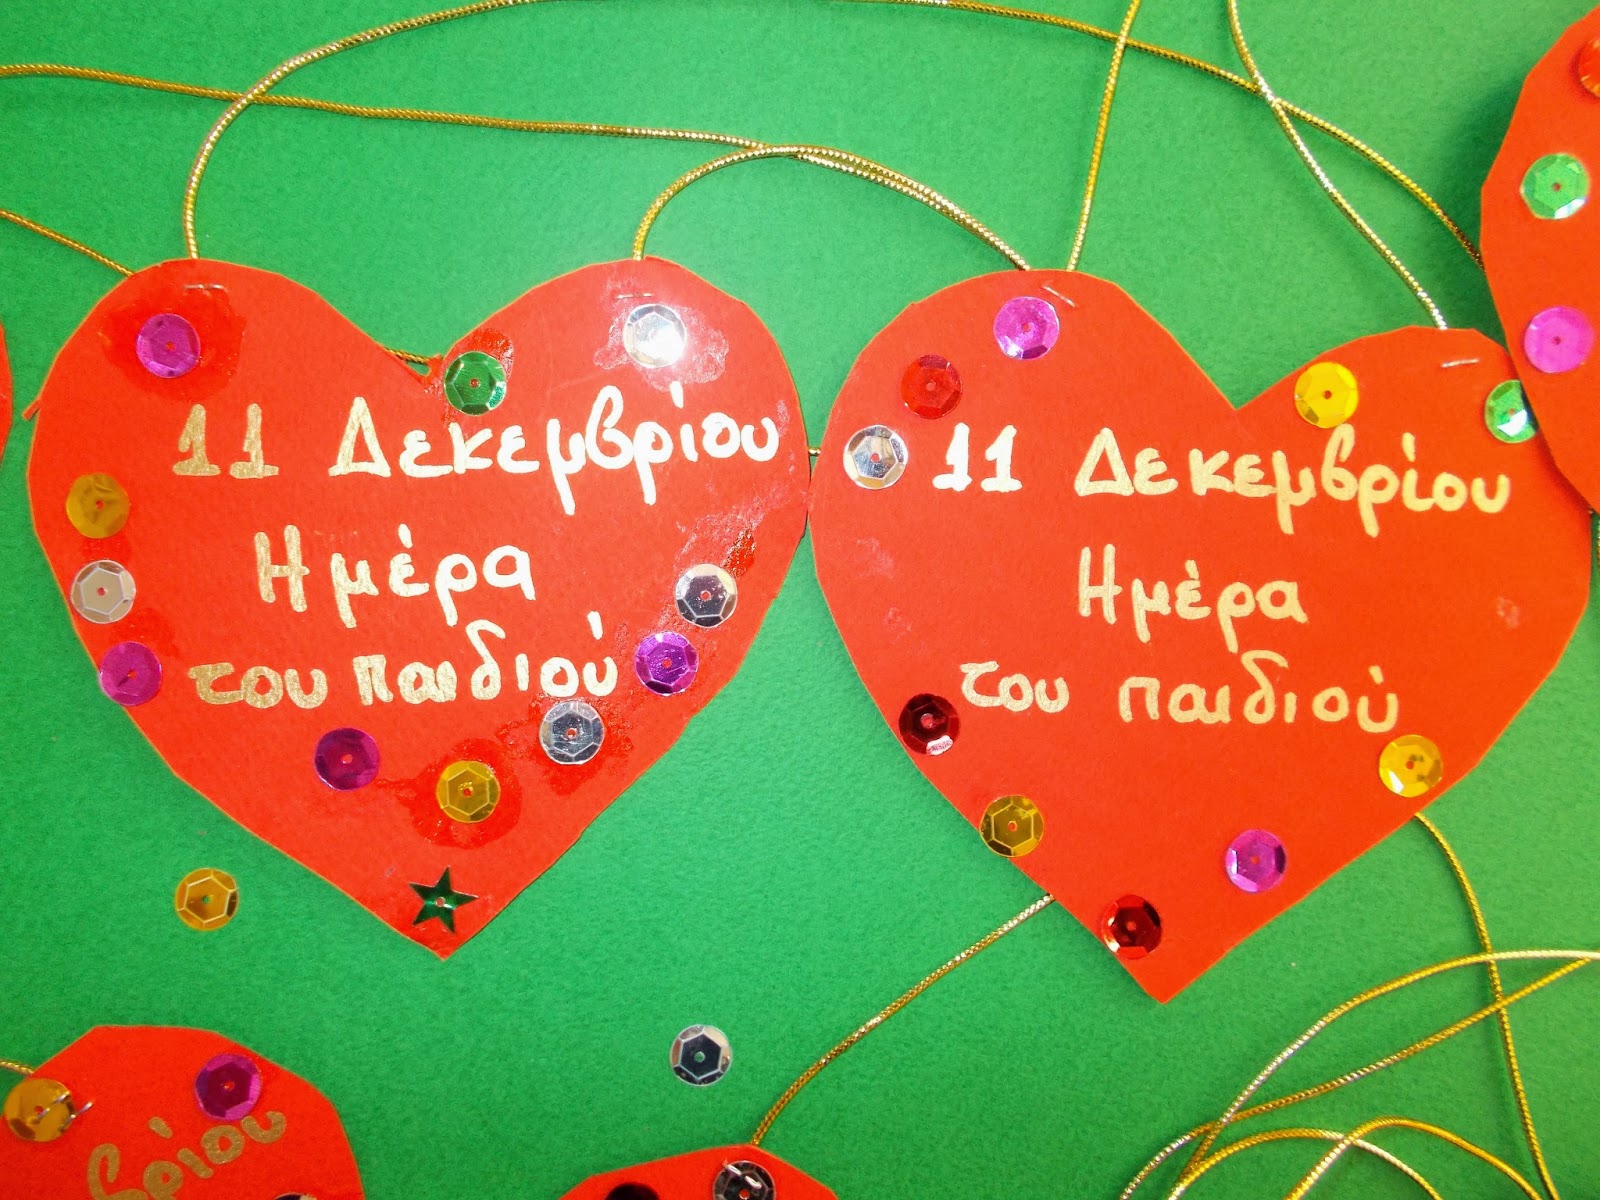 11 Δεκεμβρίου
Ημέρα
του παιδιού
11 Δεκεμβρίου
Ημέρα
του παιδιού